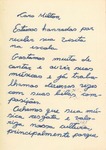 Caro Milton
Estamos honrados por
receber sua visita
na escola.
Gostamos muito de
cantar e ouvir suas
músicas e já traba-
lhamos diversas vezes
com suas belas com-
posições.
Achamos que sua mú-
sica resgata e valo-
riza nossa cultura,
principalmente porque